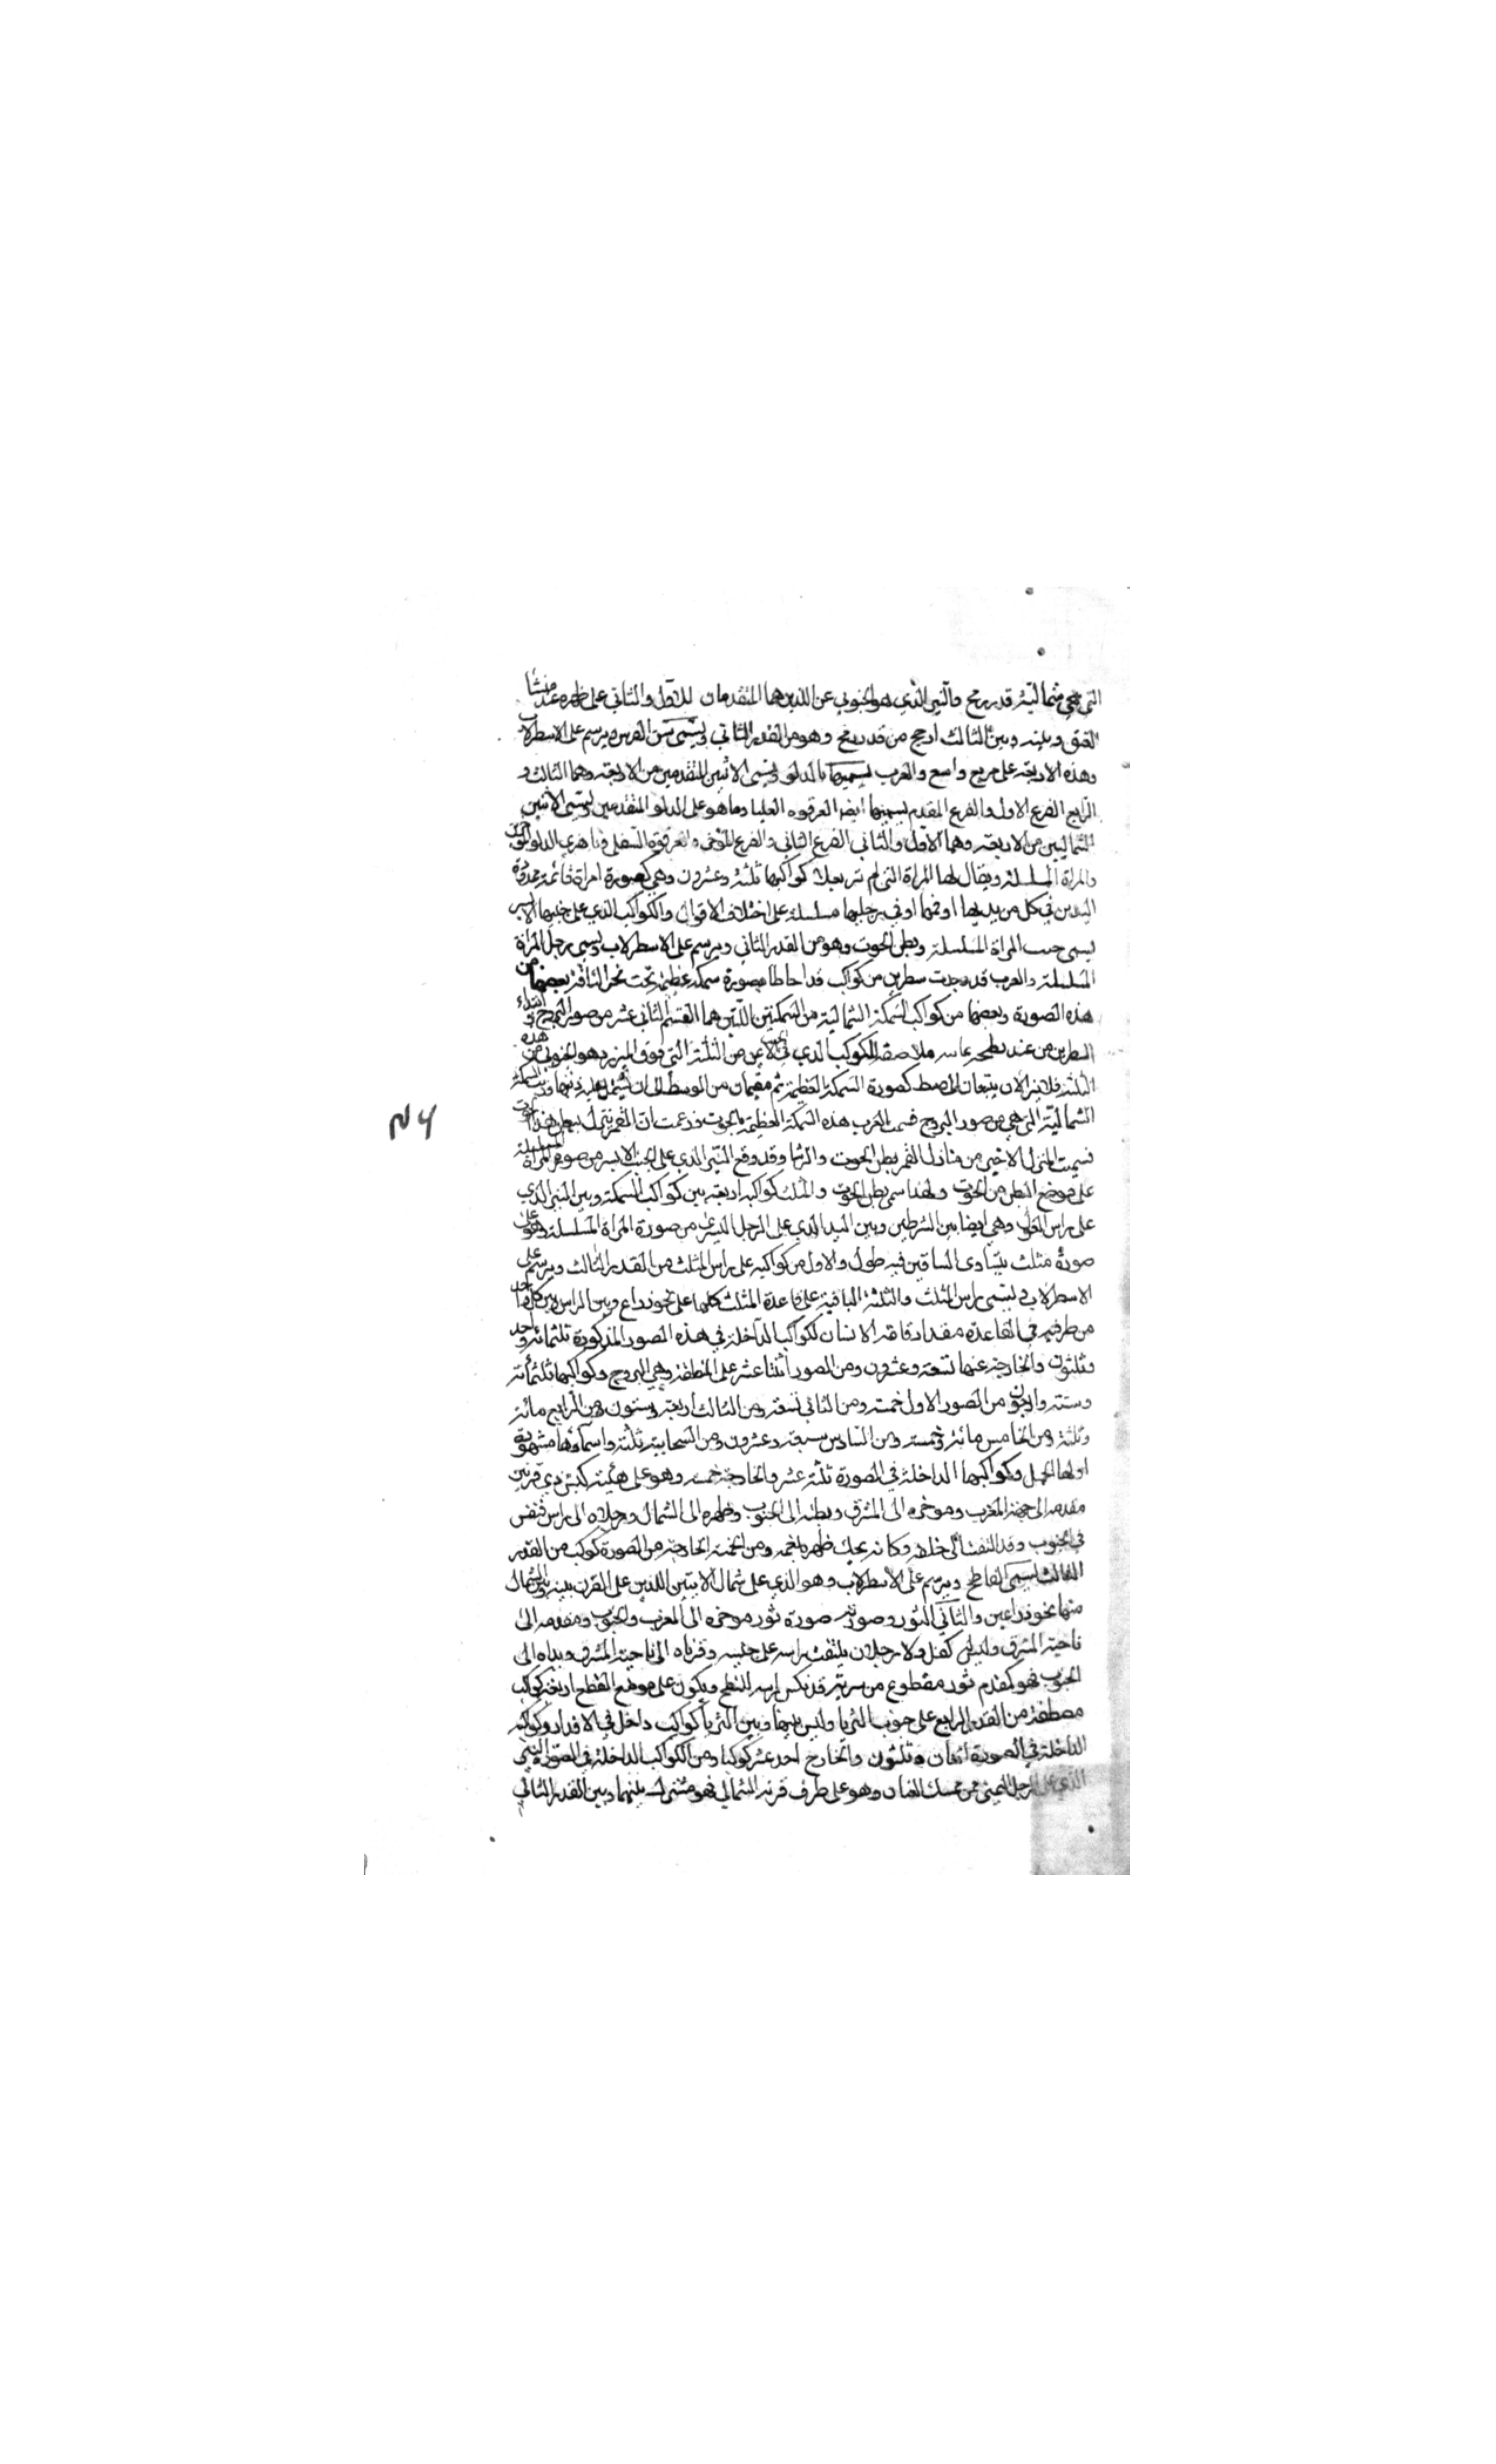 التي هي شمالية قدر رمح والنير الذي هو الجنوبي عن اللذين هما المتقدمان للاول والثاني على ظهره عند منشأ
العنق وبينه وبين الثالث ارجح من قدر رمح وهو من القدر الثاني ويسمى متن الفرس ويرسم على الاسطرلاب
وهذه الاربعة على مربع واسع والعرب يسميها بالدلو ويسمى الاثنين المتقدمين من الاربعة وهما الثالث و
الرابع الفرع الاول والفرع المقدم يسمنها ايضا العرقوه العليا وما هو على الدلو المتقدمين ويسمى الاثنين
الشماليين من الاربعة وهما الاول والثاني الفرع الثاني والفرع المؤخر والعرقوة السفلى الدلو
والمراة المسلسلة ويقال لها المراة التي لم تر بعلا كواكبها ثلثة وعشرون وهي كصورة امراة قائمة ممدودة
اليدين في كل من يديها او فيهما او في رجليها سلسلة على اختلاف الاقوال والكواكب الذي على جنبها الايسر
يسمى جنب المراة المسلسلة وبطن الحوت وهو من القدر الثاني ويرسم على الاسطرلاب ويسمى رجل المراة
المسلسلة والعرب قد وجدت سطرين من كواكب قد احاطا بصورة سمكة عظيمة تحت نحر الناقة بعضها من
هذه الصورة وبعضها من كواكب السمكة الشمالية من السمكتين اللتين هما القسم الثاني عشر من صور البروج وابتداء
السطرين من عند ملاصقة الكوكب الذي في من الثلثة التي فوق الميزر وهو الجنوبي من هذه
الثلثة فلا يزالان يتبعان كصورة السمكة العظيمة ثم من الوسط الى ان
الشمالية التي هي من صور البروج فسمت العرب هذه السمكة العظيمة بالحوت وزعمت ان القمر ينزل ببطن هذا الحوت
فسميت المنزل الاخير من منازل القمر بطن الحوت والرشا وقد وقع النير الذي على الجنب الايسر من صورة المراة المسلسلة
على موضع البطن من الحوت ولهذا سمي بطن الحوت والمثلث كواكبه اربعة بين كواكب السمكة وبين النير الذي
على راس الغول وهي ايضا بين الشرطين وبين النير الذي على الرجل اليسرى من صورة المراة المسلسلة وهو على
صورة مثلث يتساوى الساقين فيه طول والاول من كواكبه على راس المثلث من القدر الثالث ويرسم على
الاسطرلاب ويسمى راس المثلث والثلثة الباقية على قاعدة المثلث كلها على نحو ذراع وبين الراس وبين كل واحد
من طرفيه في القاعدة مقدار قامة الانسان لكواكب الداخلة في هذه الصور المذكورة ثلثمائة واحد
وثلثون والخارجة عنها تسعة وعشرون ومن الصور اثنتا عشر على المنطقة وهي البروج وكواكبها ثلثمائة
وستة واربعون من الصور الاول خمسة ومن الثاني تسعة ومن الثالث اربعة وستون ومن الرابع مائة
وثلثة ومن الخامس مائة وخمسة ومن السادس سبعة وعشرون ومن السحابية ثلثة واسماؤها مشهورة
اولها الحمل وكواكبها الداخلة في الصورة ثلثة عشر والخارجة خمسة وهو على هيئة كبش ذي قرنين
مقدمه الى جهة المغرب ومؤخره الى المشرق وبطنه الى الجنوب وظهره الى الشمال ورجلاه الى راس قنفس
في الجنوب وقد التفت الى خلفه وكانه يحك ظهره بفمه ومن الخمسة الخارجة من الصورة كوكب من القدر
الثالث يسمى الناطح ويرسم على الاسطرلاب وهو الذي على شمال الاثنين اللذين على القرن بينه وبين الشمال
منهما نحو ذراعين والثاني الثور وصورته صورة ثور مؤخره الى المغرب والجنوب ومقدمه الى
ناحية المشرق وليس له كفل ولا رجلان يلتفت براسه على جنبه وقرناه الى ناحية المشرق ويداه الى
الجنوب فهو كمقدم ثور مقطوع من سرته قد نكس راسه للنطح ويكون على موضع القطع اربعة كواكب
مصطفة من القدر الرابع على جنوب الثريا وليس بينها وبين الثريا كواكب داخل في الاقدار وكواكبه
الداخلة في الصورة اثنان وثلثون والخارج احد عشر كوكبا ومن الكواكب الداخلة في الصورة النير
الذي على الرجل اليمنى من ممسك العنان وهو على طرف قرنه الشمالي فهو مشترك بينهما وبين القدر الثاني